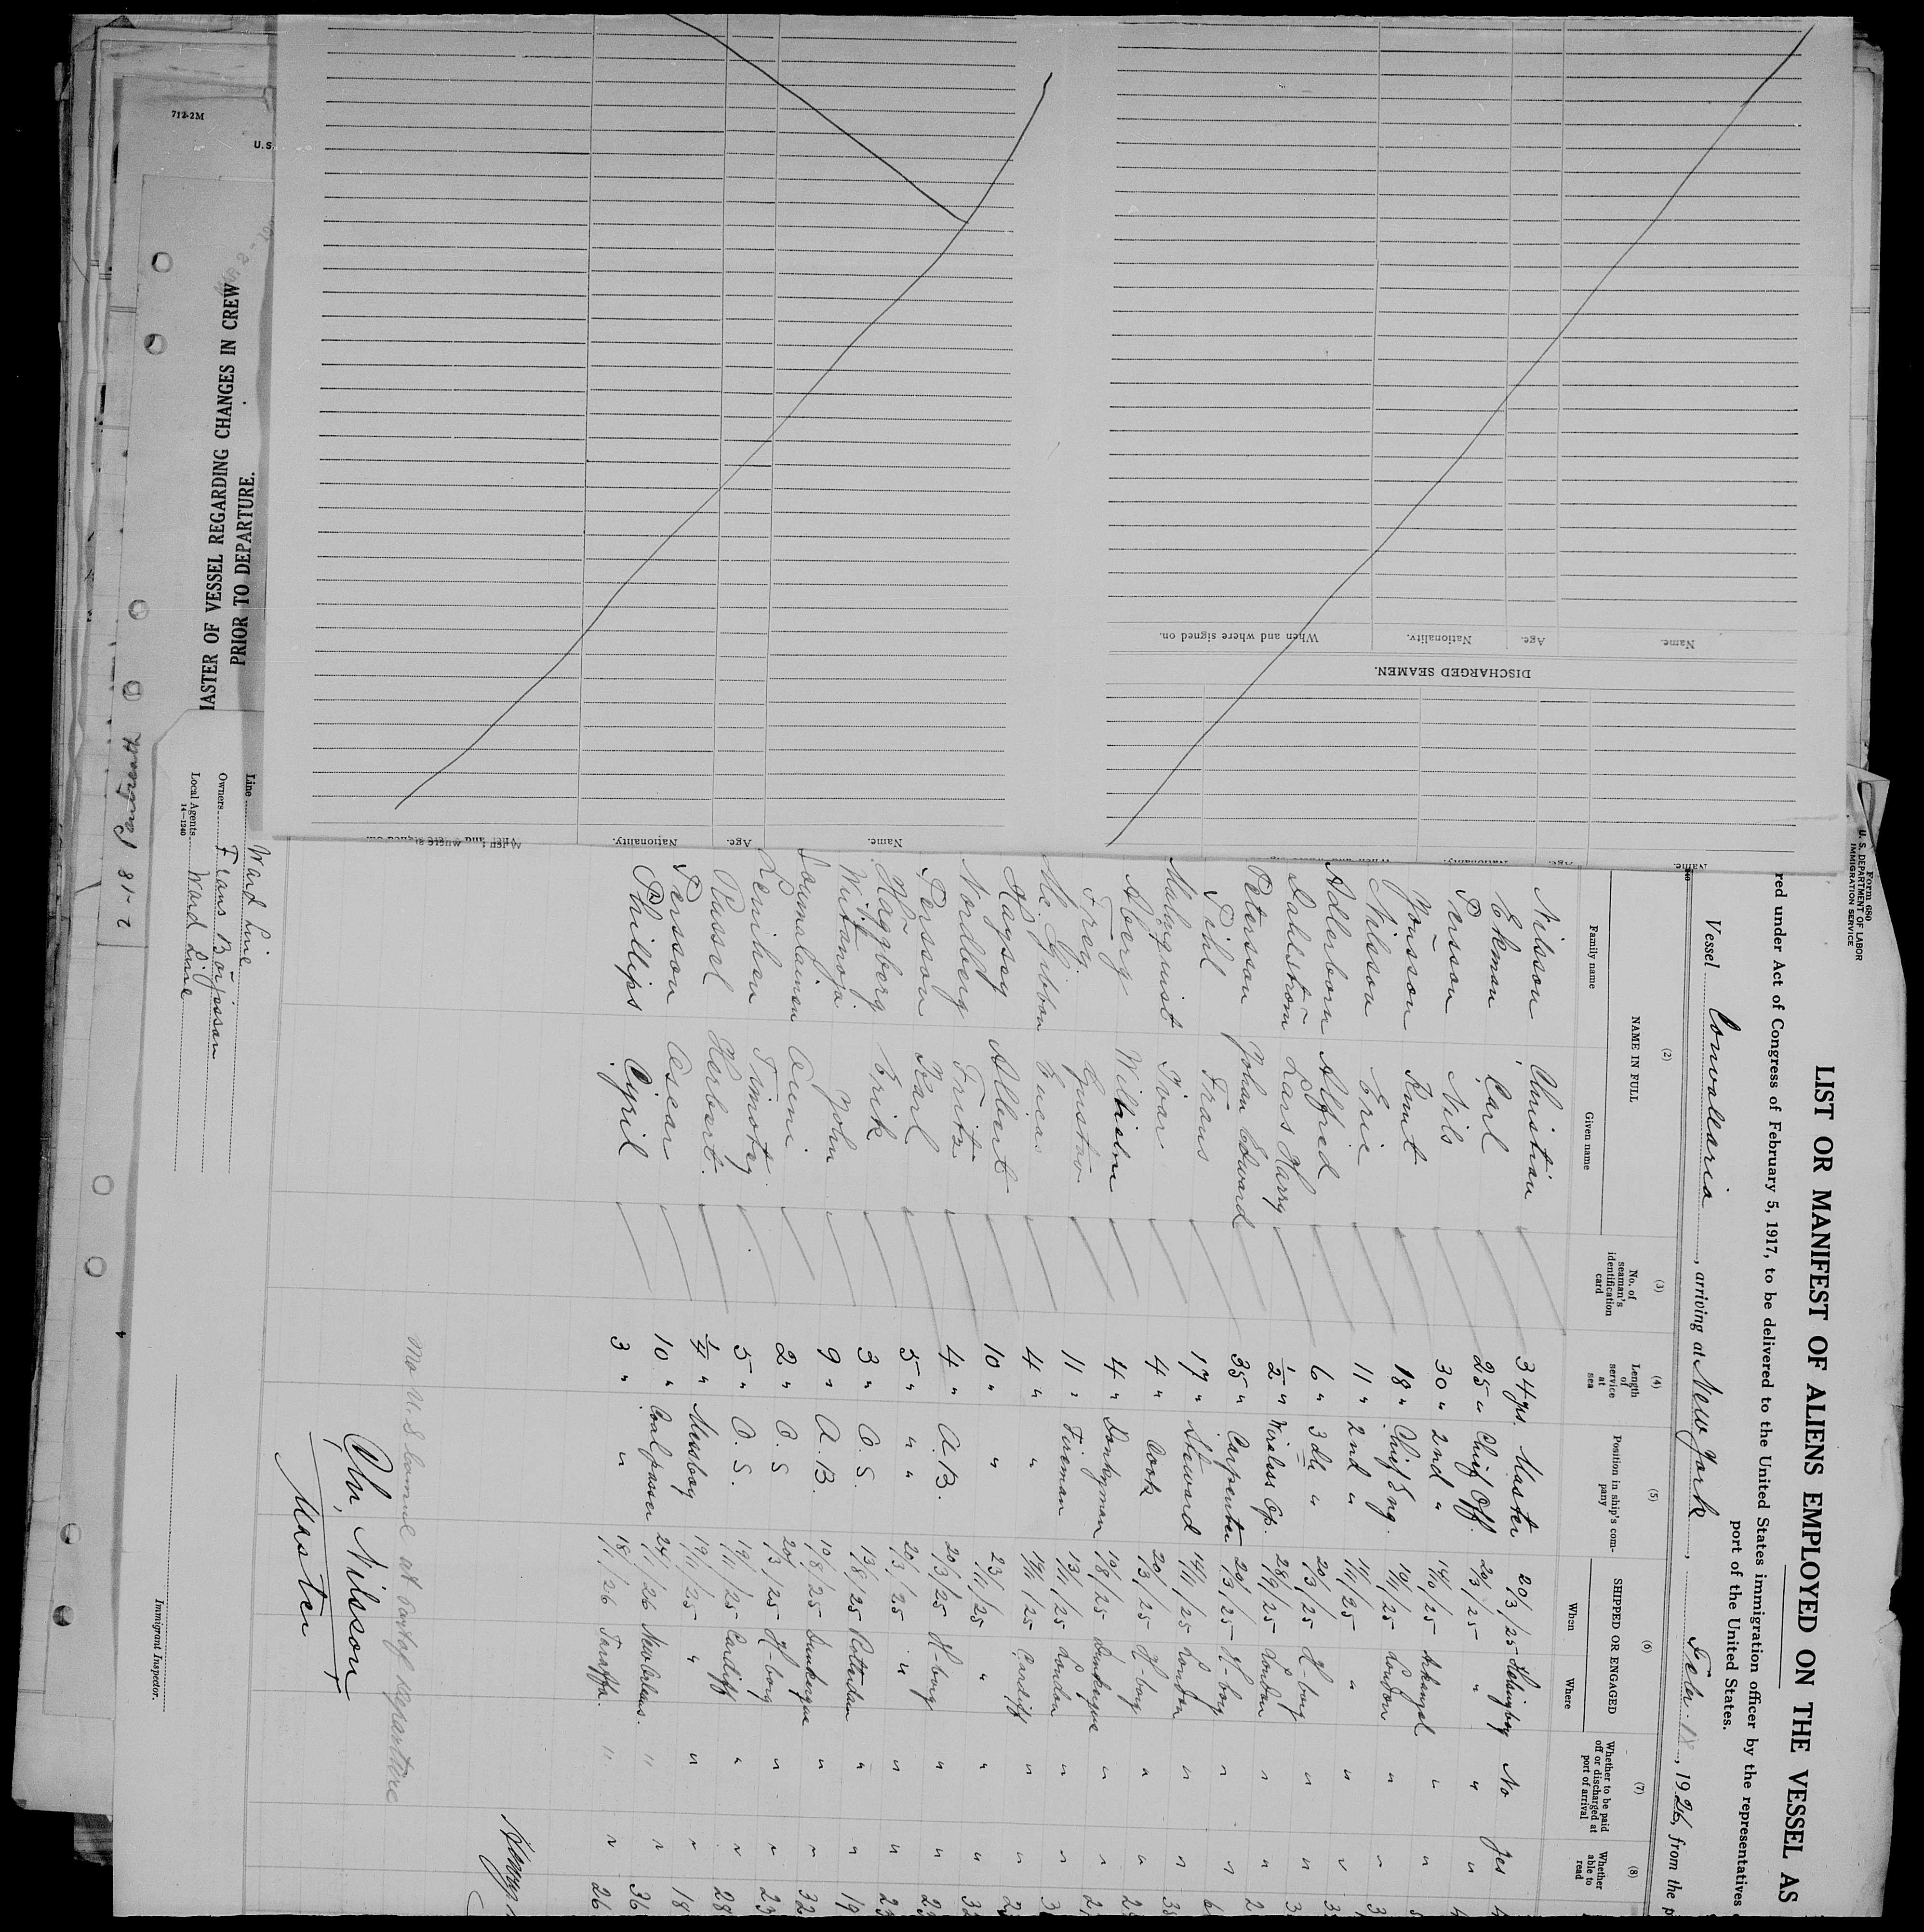 Form 680
U. S. DEPARTMENT OF LABOR
IMMIGRATION SERVICE
LIST OR MANIFEST OF ALIENS EMPLOYED ON THE VESSEL AS
red under Act of Congress of February 5, 1917, to be delivered to the United States immigration officer by the representatives
port of the United States.
Vessel Convallaria, arriving at New York, Febr. 18, 1926, from the p
(2) (3) (4) (5) (6) (7) (8)
NAME IN FULL No. of seaman's identification card Length of service at sea Position in ship's company SHIPPED OR ENGAGED Whether to be paid off or discharged at port of arrival Whether able to read
Family name Given name When Where
Nilsson Christian 34 yrs. Master 20/3/25 Helsingborg No Yes
Ekman Carl 25 " Chief Off. 20/3/25 " " "
Persson Nils 30 " 2nd " 14/10/25 Arkangel " "
Jönsson Knut 18 " Chief Eng. 19/11/25 London " "
Nilsson Eric 11 " 2nd " 14/11/25 " " "
Adlerborn Alfred 6 " 3rd " 20/3/25 H-borg " "
Dahlström Lars Harry 1/2 " Wireless Op. 28/9/25 London " "
Petersson Johan Edward 35 " Carpenter 20/3/25 H-borg " "
Pihl Frans 17 " Steward 14/11/25 London " "
Malmquist Ivar 4 " Cook 20/3/25 H-borg " "
Åberg Wilhelm 4 " Donkeyman 19/8/25 Dunkerque " "
Frey Gustav 11 " Fireman 13/11/25 London " "
Mc. Gibbon 4 " " 19/11/25 Cardiff " "
Haysey Albert 10 " " 23/11/25 " " "
Nordberg Fritz 4 " A.B. 20/3/25 H-borg " "
Persson Karl 5 " " 20/3/25 " " "
Häggberg Erik 3 " O.S. 13/8/25 Rotterdam " " 19
John 9 " A.B. 19/8/25 Dunkerque " " 32
2 " O.S. 20/3/25 H-borg " " 23
Lenihan Timotey 5 " O.S. 19/11/25 Cardiff " " 28
Russel Herbert. 1/4 " Messboy 19/11/25 " " " 18
Persson Oscar 10 " Coalpasser 24/1/26 New Orleans. " " 36
Phillips Cyril 3 " " 18/1/26 Taraffa. " " 26
No U.S. Consul at Port of departure
Chr. Nilsson
Master
Immigrant Inspector.
Line Ward Line
Owners Frans
Local Agents Ward Line
14—1240
MASTER OF VESSEL REGARDING CHANGES IN CREW
PRIOR TO DEPARTURE.
712-2M
U. S.
DISCHARGED SEAMEN.
Name. Age. Nationality. When and where signed on.
Name. Age. Nationality. When and where signed on.